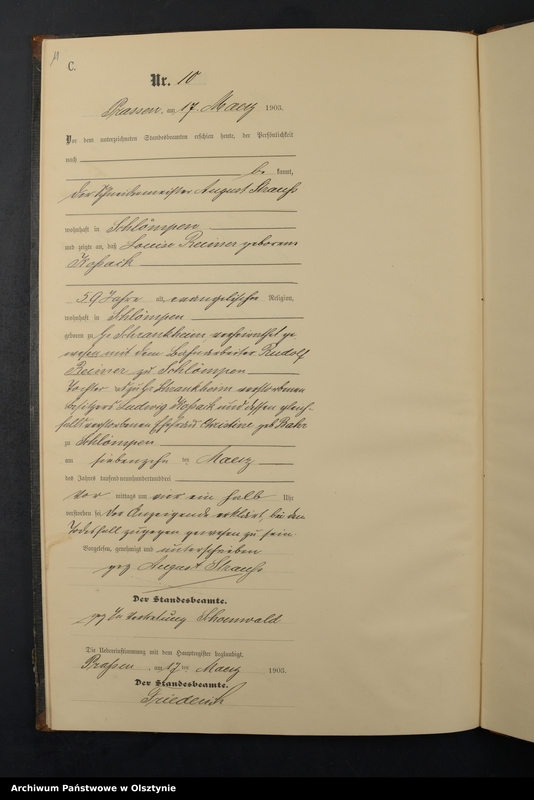 11
C.
Nr. 10
Prassen, am 17. Maerz 1903.
Vor dem unterzeichneten Standesbeamten erschien heute, der Persönlichkeit
nach
be kannt,
der Schneidermeister August Strauss
wohnhaft in Schlömpen
und zeigte an, daß Louise Reimer geborene
Kossack
59 Jahre alt, evangelischer Religion,
wohnhaft in Schlömpen
geboren zu Gr Schrankheim verheirathet ge
wesen mit dem Bahnarbeiter Rudolf
Reimer zu Schlömpen
Tochter des zu Gr Schrankheim verstorbenen
Besitzers Ludwig Kossack und dessen gleich-
falls verstorbenen Ehefrau Christine geb Bahr
zu Schlömpen
am siebenzehn ten Maerz
des Jahres tausendneunhundertunddrei
Vor mittags um vier ein halb Uhr
verstorben sei, der Anzeigende erklärt, bei dem
Todesfall zugegen gewesen zu sein.
Vorgelesen, genehmigt und unterschrieben
gez. August Strauss
Der Standesbeamte.
gez In Vertretung Schoenwald
Die Uebereinstimmung mit dem Hauptregister beglaubigt.
Prassen am 17 ten Maerz 1903.
Der Standesbeamte.
Friederich
Archiwum Państwowe w Olsztynie